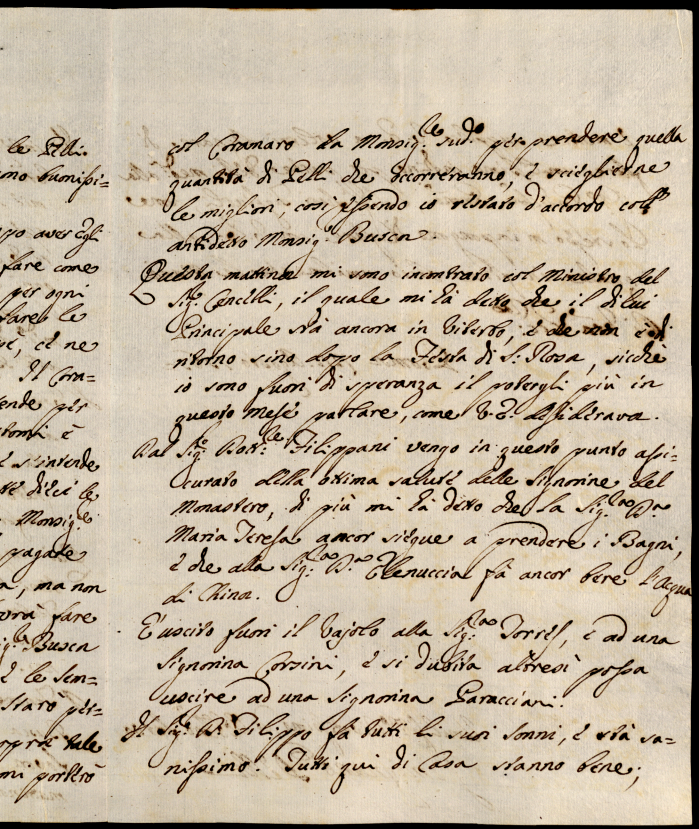 le Pelli
mo buonissi=
po aver Egli
fare come
per ogni
le
ce ne
Il Cora=
ende per
è
s'intende
dieci le
Monsig.re
pagare
ma non
fare
Busca
è le sem=
starò per=
tale
mi porterò
col Coramaro da Monsig.re sud.o per prendere quella
quantità di Pelli che occorreranno, è sciegliere
le migliori, così essendo io restato d'accordo coll'
antidetto Monsig.r Busca
Questa mattina mi sono incontrato col Ministro del
Sig.r Cencelli, il quale mi hà detto che il di lui
Principale stà ancora in Viterbo, è che non è di
ritorno sino dopo la Festa di S. Rosa, sicche
io sono fuori di speranza il potergli più in
questo mese parlare, come V.E. desiderava.
Dal Sig.r Dott.re Filippani vengo in questo punto assi=
curato della ottima salute delle Signorine del
Monastero, di più mi hà detto che la Sig.ra D.a
Maria Teresa ancor siegue a prendere i Bagni,
è che alla Sig.ra D.a Elenuccia fà ancor bere l'Acqua
di China.
E' uscito fuori il Vajolo alla Sig.ra Torres, è ad una
Signorina Corsini, è si dubita altresì possa
uscire ad una Signorina Paracciani.
Il Sig.r D. Filippo fà tutti li suoi sonni, è stà sa=
nissimo. Tutti qui di Casa stanno bene;